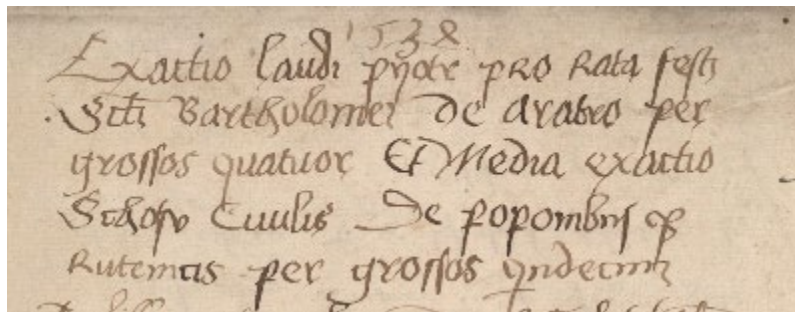 1538
Exactio Laudi pñcte pro Rata festi
Scti Bartholomei de aratro per
grossos quatuor Et Media exactio
Schoſv Ciuilis De popombus
Rutemcis per grossos qindecim